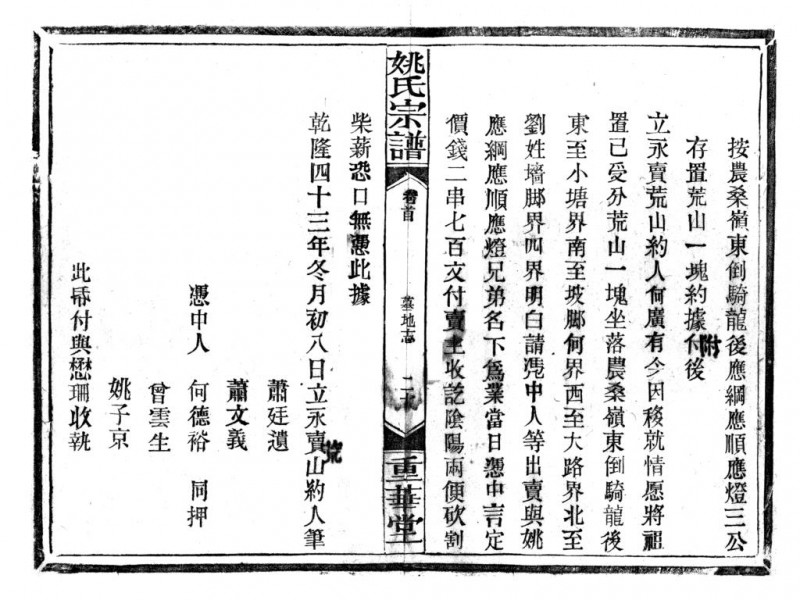 按農桑嶺東倒騎龍後應綱應順應燈三公
存置荒山一塊約據附後
立永賣荒山約人何廣有今因移就情愿將祖
置已受分荒山一塊坐落農桑嶺東倒騎龍後
東至小塘界南至坡脚何界西至大路界北至
劉姓墻脚界四界明白請凴中人等出賣與姚
應綱應順應燈兄弟名下爲業當日憑中言定
價錢二串七百文付賣主收訖陰陽兩便砍割
姚氏宗譜
卷首
墓地志
重華堂
柴薪恐口無憑此據
乾隆四十三年冬月初八日立永賣荒山約人筆
蕭廷遺
蕭文義
憑中人 何德裕 同押
曾雲生
姚子京
此帋付與懋珊收執